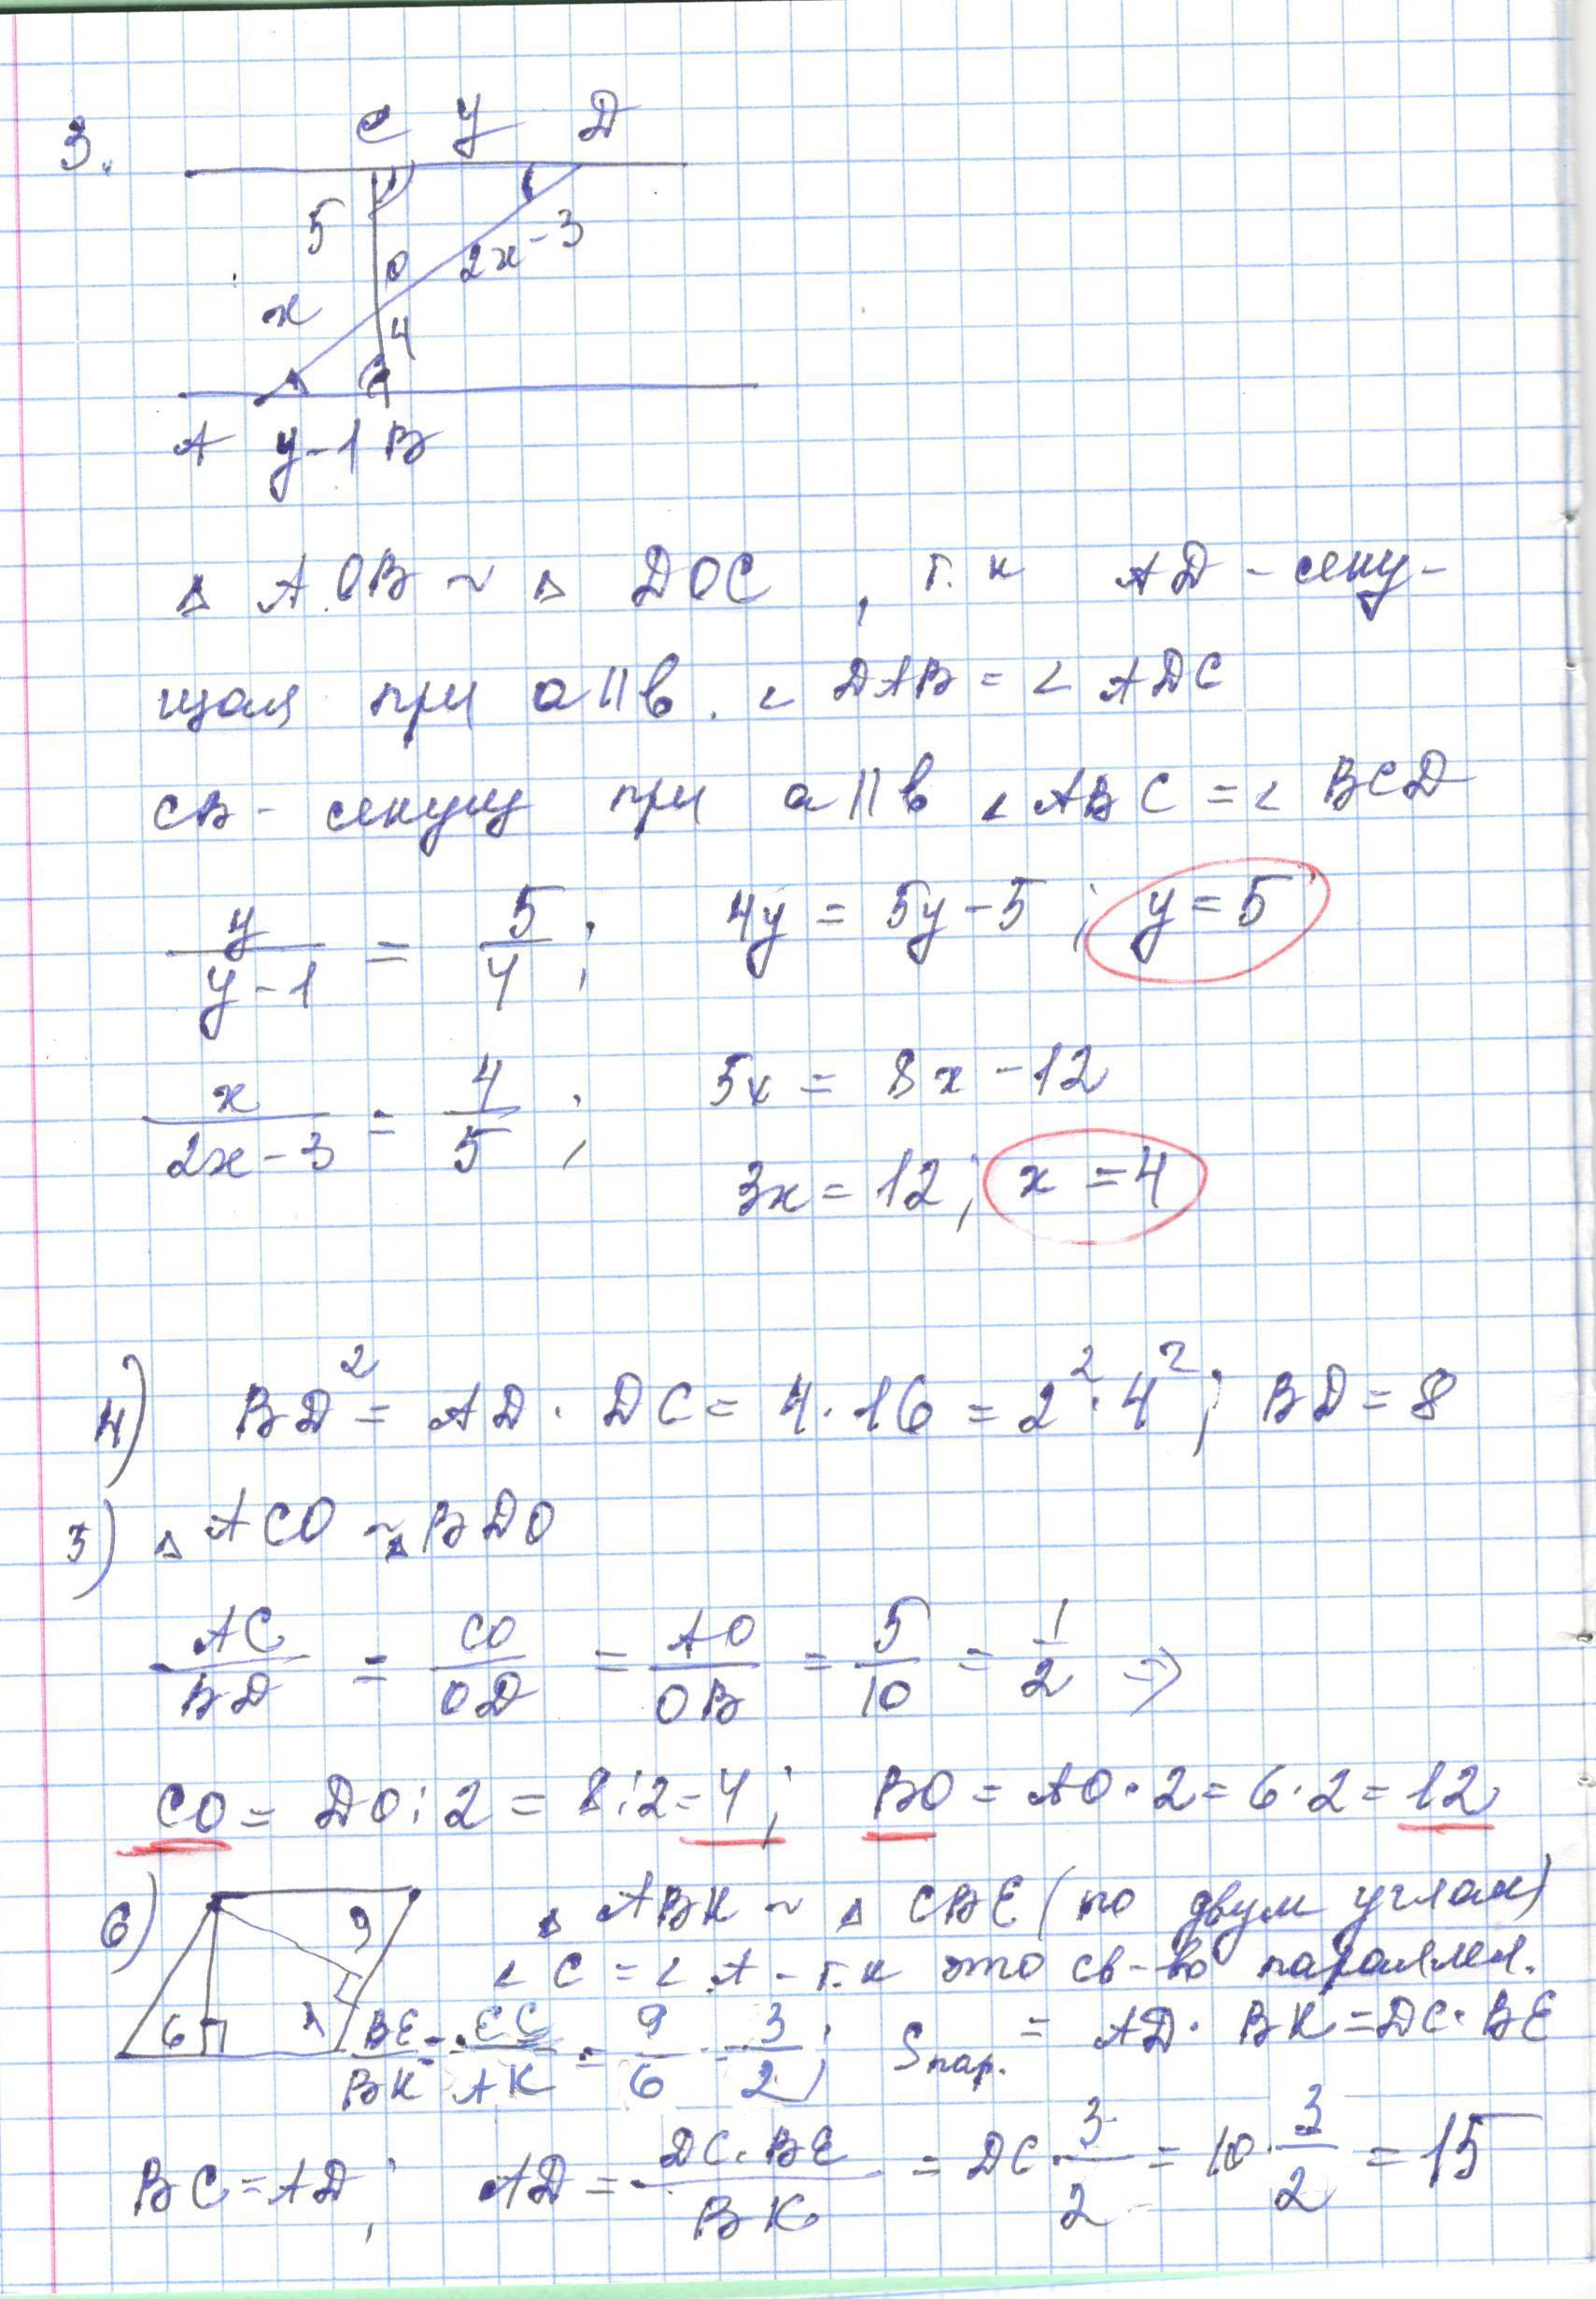 3.
C y D
5
O 2x-3
x
4
A y-1 B
△ AOB ~ △ DOC , т.к AD - секу-
щая при a||b. ∠ DAB = ∠ ADC
CB - секущ при a||b ∠ ABC = ∠ BCD
y/(y-1) = 5/4 ; 4y = 5y-5 ; y=5
x/(2x-3) = 4/5 ; 5x = 8x-12
3x = 12 ; x = 4
4) BD² = AD · DC = 4 · 16 = 2² · 4² ; BD = 8
5) △ ACO ~ △ BDO
AC/BD = CO/OD = AO/OB = 5/10 = 1/2 ⇒
CO = DO : 2 = 8:2 = 4 ; BO = AO · 2 = 6·2 = 12
6) 9 △ ABK ~ △ CBE (по двум углам)
∠ C = ∠ A - т.к это св-во параллел.
6 BE/BK = EC/AK = 9/6 = 3/2 ; Sпар. = AD · BK = DC · BE
BC = AD ; AD = DC·BE/BK = DC · 3/2 = 10 · 3/2 = 15